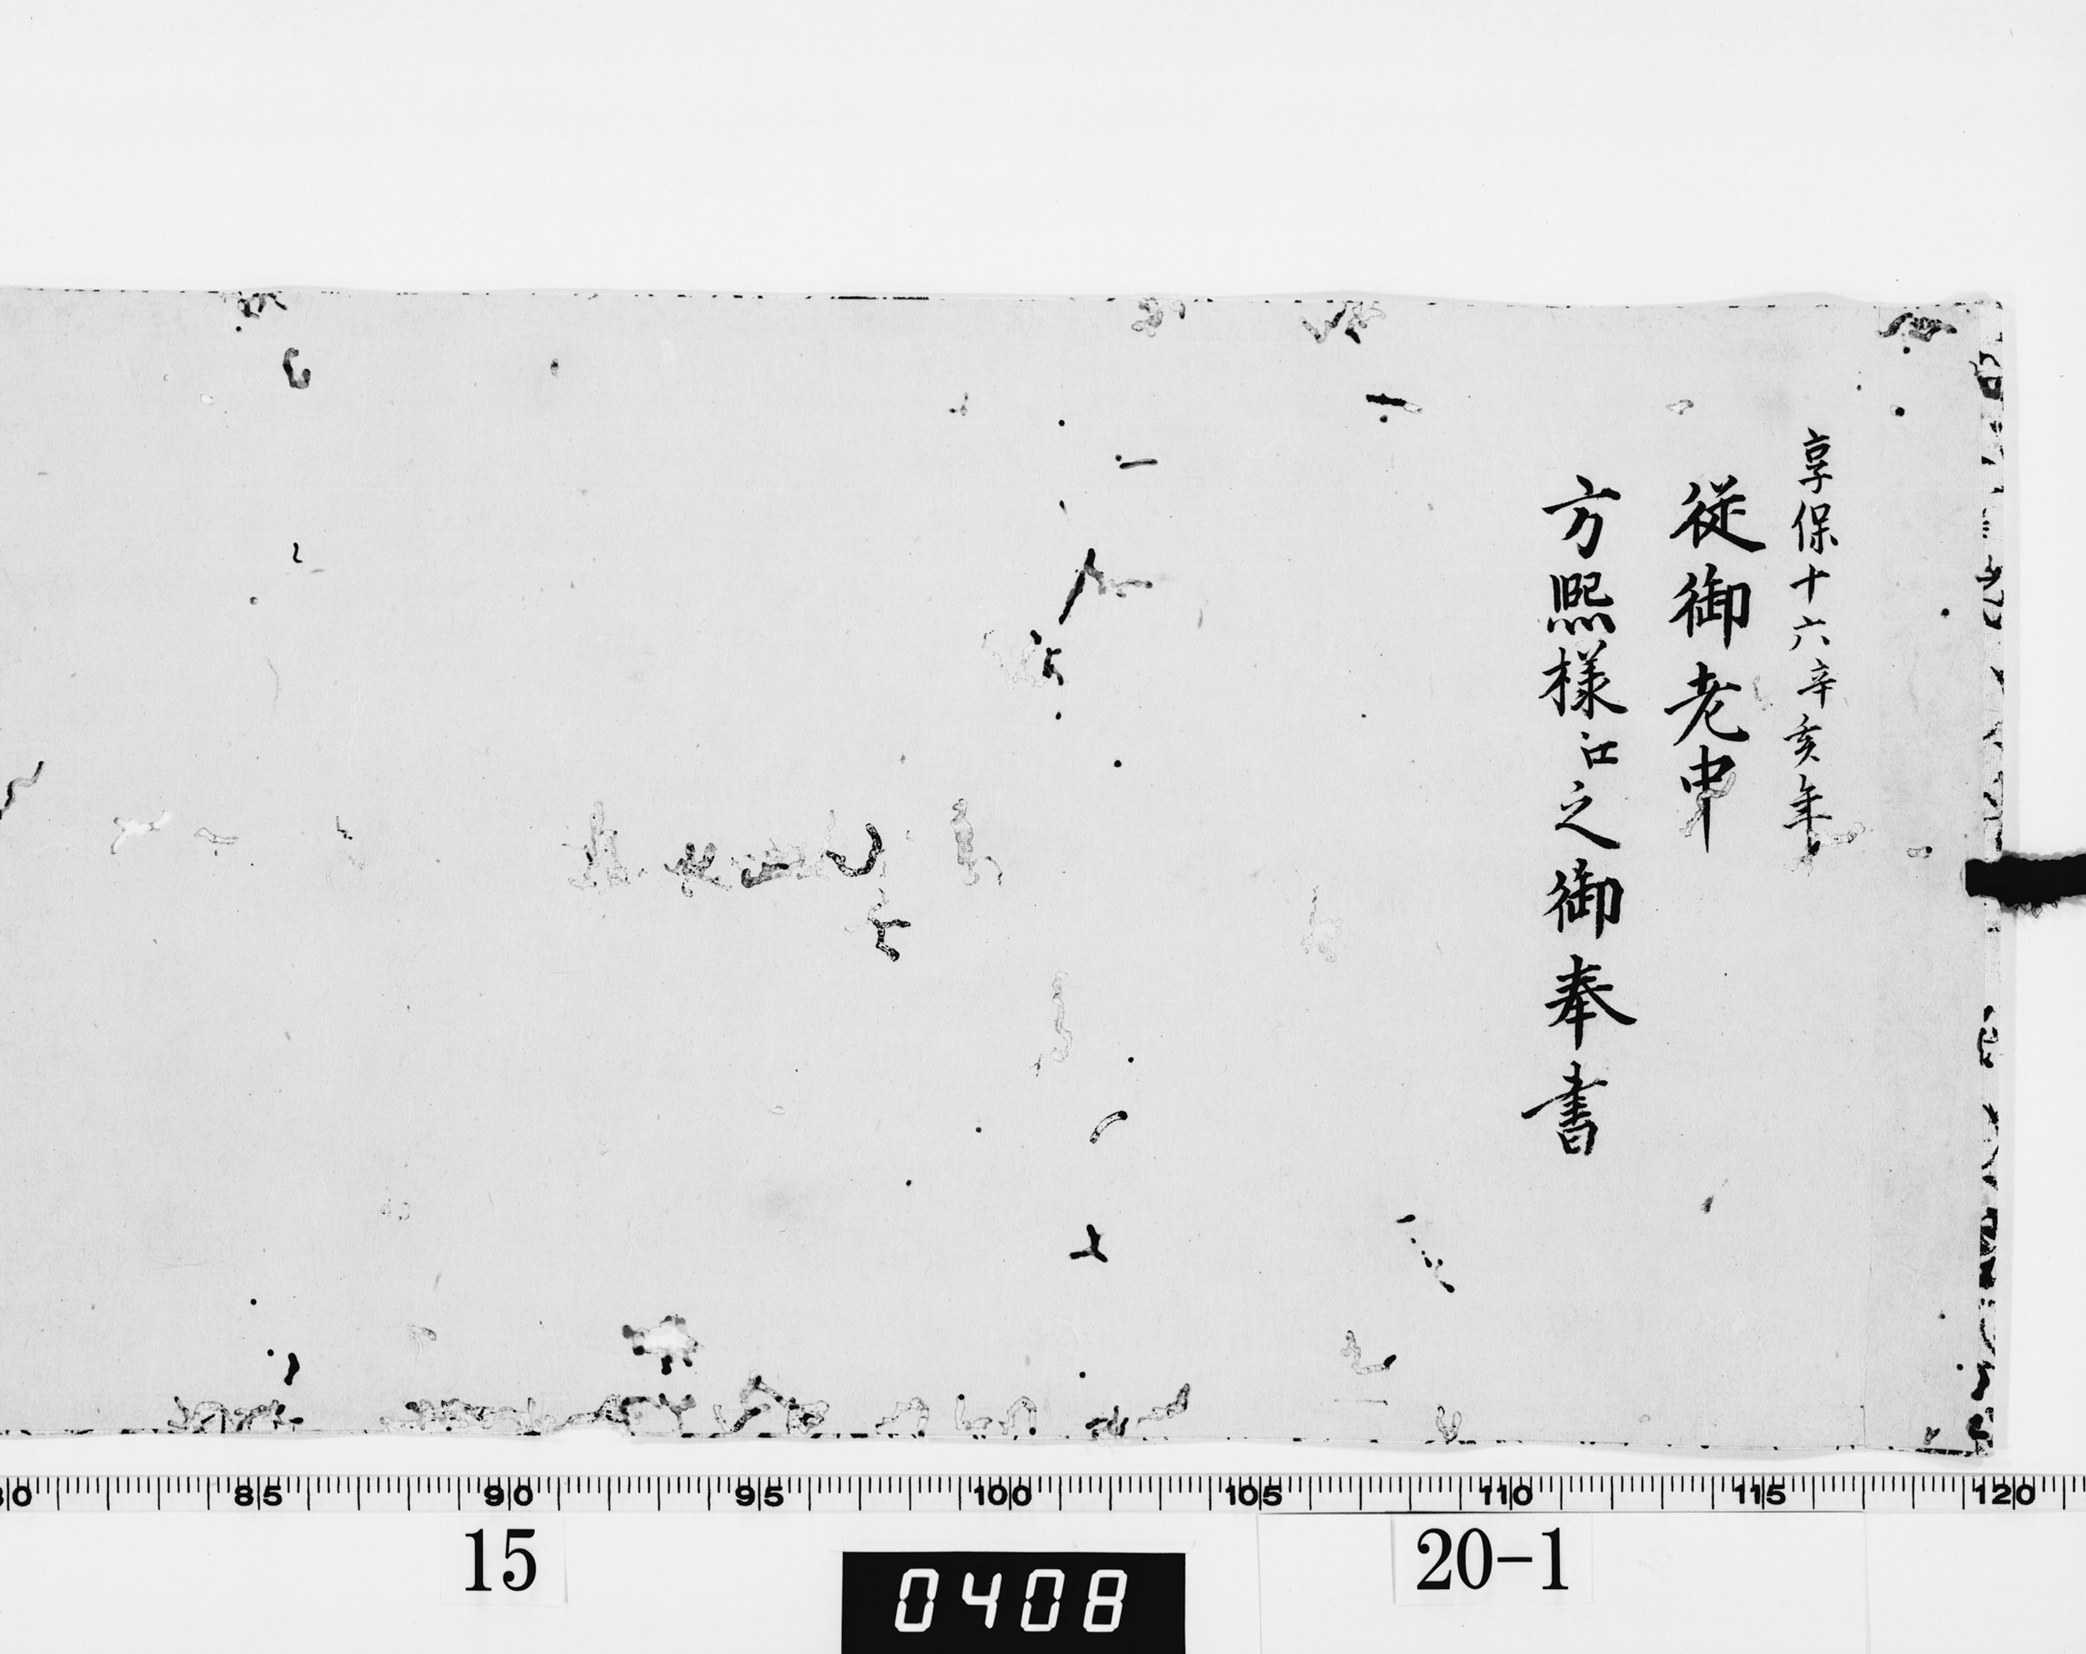 享保十六辛亥年
従御老中
方熈様江之御奉書
80 85 90 95 100 105 110 115 120
15
0408
20-1